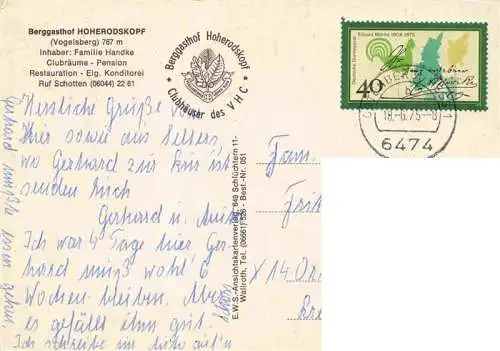 Berggasthof HOHERODSKOPF
(Vogelsberg) 767 m
Inhaber: Familie Handke
Clubräume - Pension
Restauration - Eig. Konditorei
Ruf Schotten (06044) 22 61
Berggasthof Hoherodskopf
Clubhäuser des VHC
Eduard Mörike 1804-1875
Deutsche Bundespost
40
18.-6.75-8
6474
Herzliche Grüße von
hier sowie aus Selters,
wo Gerhard zur Kur ist
senden Euch
Gerhard u.
Ich war 4 Tage hier, Ger-
hard muß wohl 6
Wochen bleiben. Aber
es gefällt ihm gut.
Ich schreibe im auf'n
Gerhard mußte essen gehen,
E.W.S.-Ansichtskartenverlag, 649 Schlüchtern 11-
Wallroth, Tel. (06661) 526 - Best.-Nr. 081
Fam.
X 14